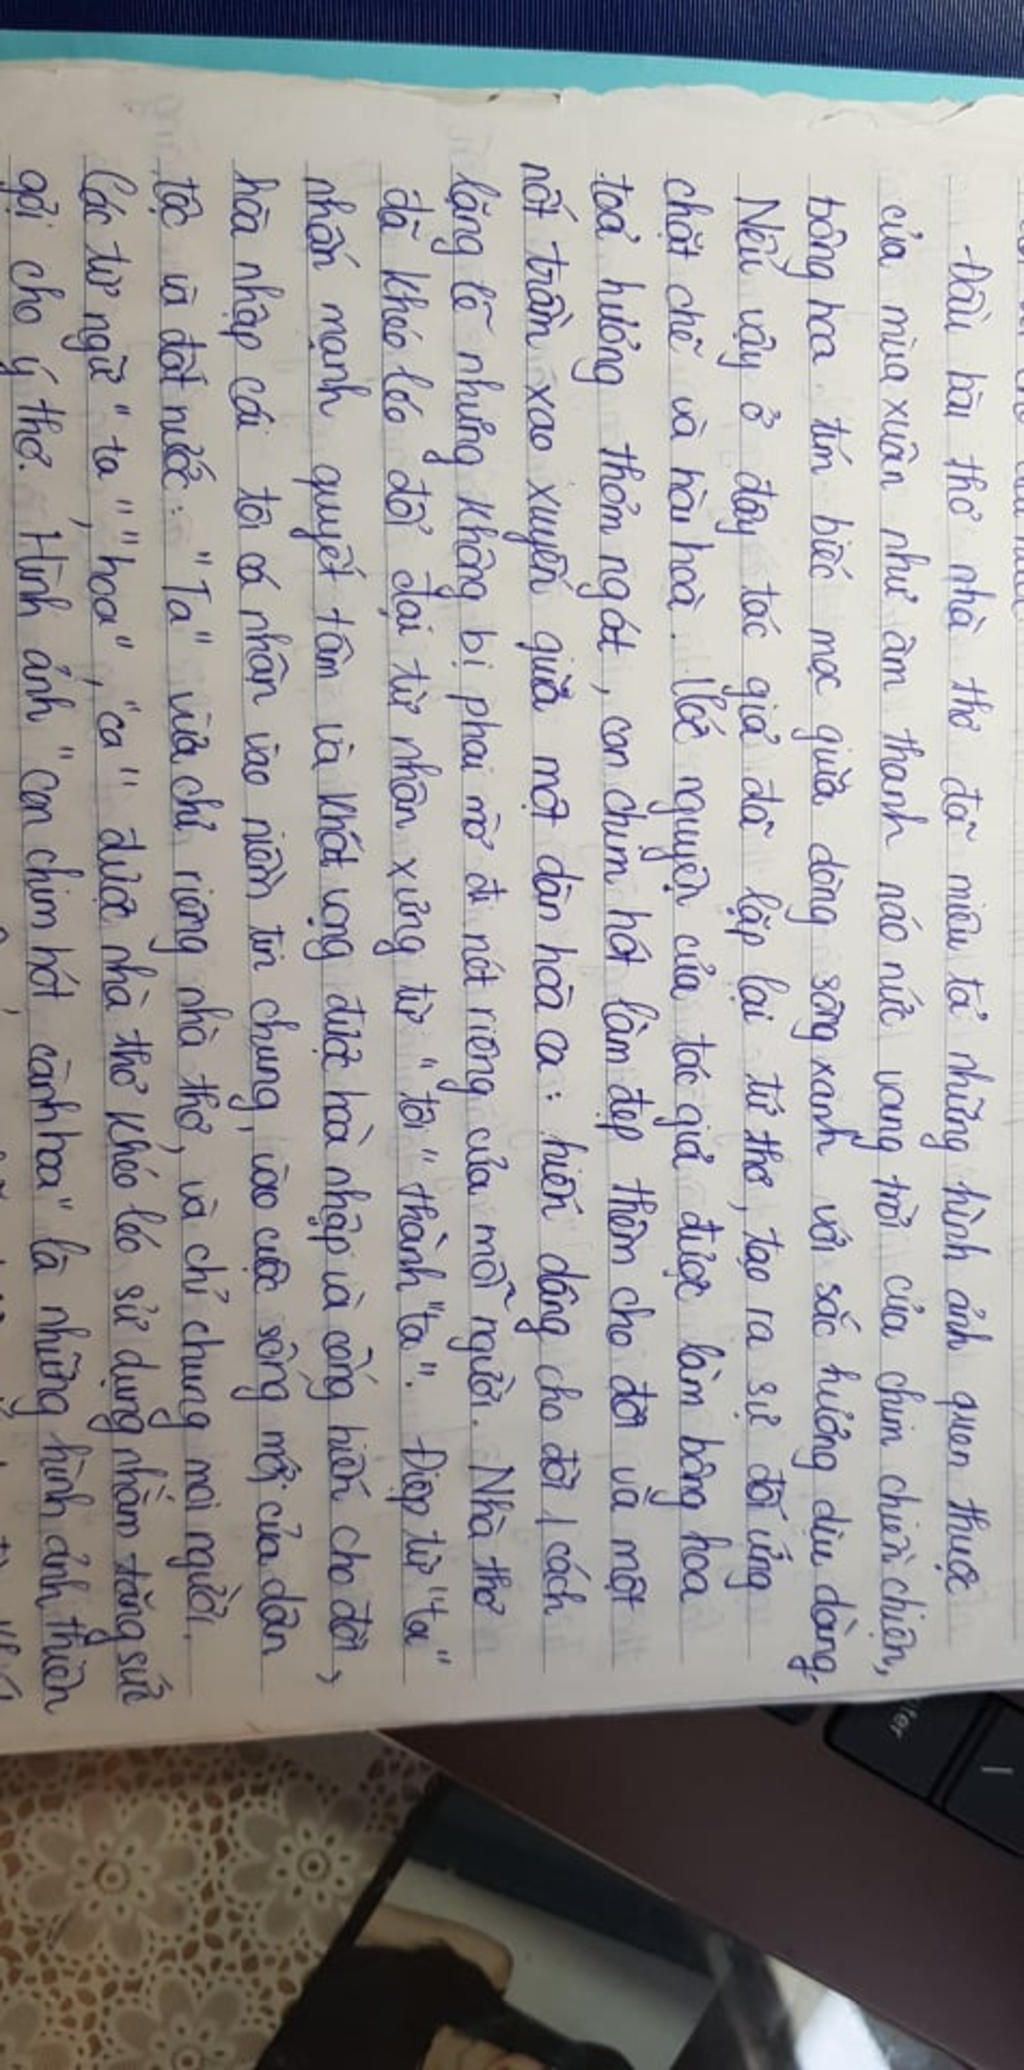 Đầu bài thơ nhà thơ đã miêu tả những hình ảnh quen thuộc
của mùa xuân như âm thanh náo nức vang trời của chim chiền chiện,
bông hoa tím biếc mọc giữa dòng sông xanh với sắc hương dịu dàng.
Nếu vậy ở đây tác giả đã lặp lại tứ thơ, tạo ra sự đối ứng
chặt chẽ và hài hoà. Ước nguyện của tác giả được làm bông hoa
toả hương thơm ngát, con chim hót làm đẹp thêm cho đời và một
nốt trầm xao xuyến giữa một dàn hòa ca: hiến dâng cho đời 1 cách
lặng lẽ nhưng không bị phai mờ đi nét riêng của mỗi người. Nhà thơ
đã khéo léo đổi đại từ nhân xưng từ "tôi" thành "ta". Điệp từ "ta"
nhấn mạnh quyết tâm và khát vọng được hoà nhập và cống hiến cho đời,
hòa nhập cái tôi cá nhân vào niềm tin chung, vào cuộc sống mới của dân
tộc và đất nước: "Ta" vừa chỉ riêng nhà thơ, và chỉ chung mọi người.
Các từ ngữ "ta", "hoa", "ca" được nhà thơ khéo léo sử dụng nhằm tăng sức
gợi cho ý thơ. Hình ảnh "con chim hót, cành hoa" là những hình ảnh thiên